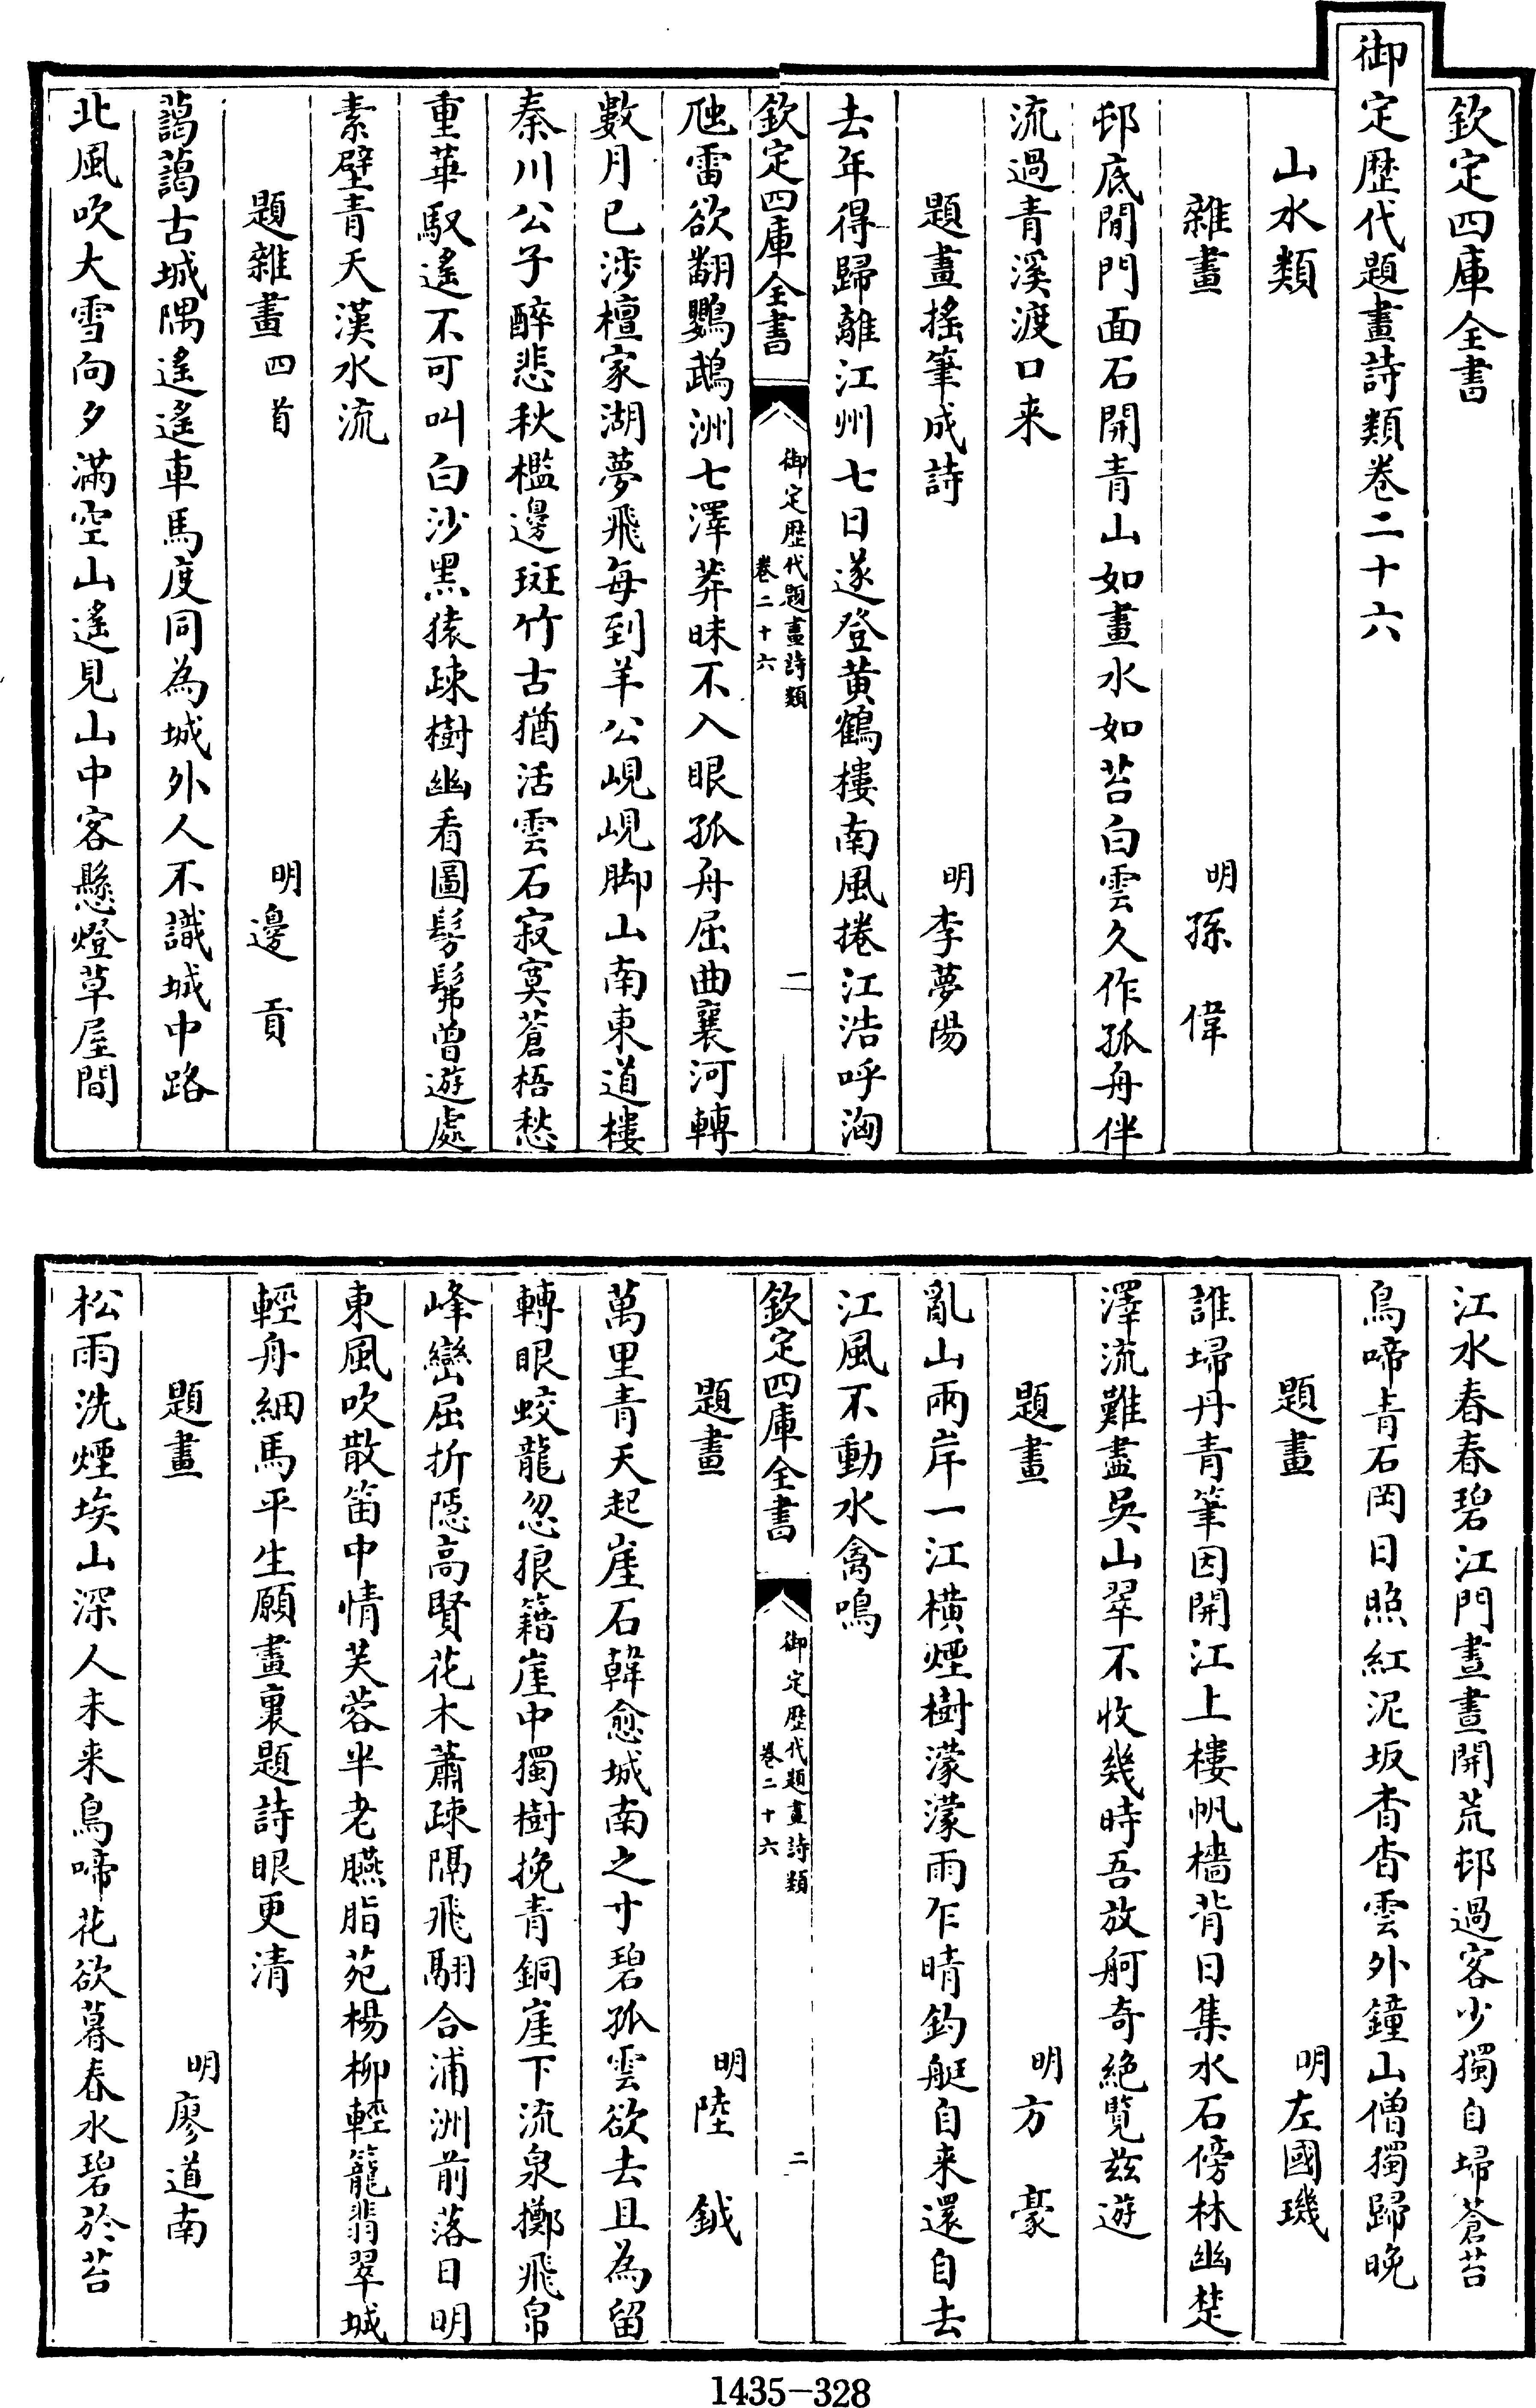 欽定四庫全書
御定歴代題畫詩類卷二十六
山水類
雜畫 明孫偉
邨底閒門面石開青山如畫水如苔白雲久作孤舟伴
流過青溪渡口来
題畫搖筆成詩 明李夢陽
去年得歸離江州七日遂登黄鶴樓南風捲江浩呼洶
欽定四庫全書 御定歴代題畫詩類 卷二十六 一
虺雷欲翻鸚鵡洲七澤莽昧不入眼孤舟屈曲襄河轉
數月已涉檀家湖夢飛每到羊公峴峴脚山南東道樓
秦川公子醉悲秋檻邊斑竹古猶活雲石寂寞蒼梧愁
重華馭遙不可叫白沙黑猿疎樹幽看圖髣髴曽遊處
素壁青天漢水流
題雜畫四首 明邊貢
藹藹古城隅遙遙車馬度同為城外人不識城中路
北風吹大雪向夕滿空山遙見山中客懸燈草屋間
江水春春碧江門晝晝開荒邨過客少獨自埽蒼苔
鳥啼青石岡日照紅泥坂杳杳雲外鐘山僧獨歸晚
題畫 明左國璣
誰埽丹青筆因開江上樓帆檣背日集水石傍林幽楚
澤流難盡吳山翠不收幾時吾放舸奇絶覽兹遊
題畫 明方豪
亂山兩岸一江橫煙樹濛濛雨乍晴釣艇自来還自去
江風不動水禽鳴
欽定四庫全書 御定歴代題畫詩類 卷二十六 二
題畫 明陸鉞
萬里青天起崖石韓愈城南之寸碧孤雲欲去且為留
轉眼蛟龍忽狼籍崖中獨樹挽青銅崖下流泉擲飛帛
峰巒屈折隱高賢花木蕭疎隔飛翮合浦洲前落日明
東風吹散笛中情芙蓉半老臙脂苑楊柳輕籠翡翠城
輕舟細馬平生願畫裏題詩眼更清
題畫 明廖道南
松雨洗煙埃山深人未来鳥啼花欲暮春水碧於苔
1435-328